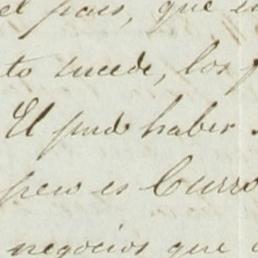 el pais, que
to sucede, los
El pudo haber
pero es Curro
negocios que